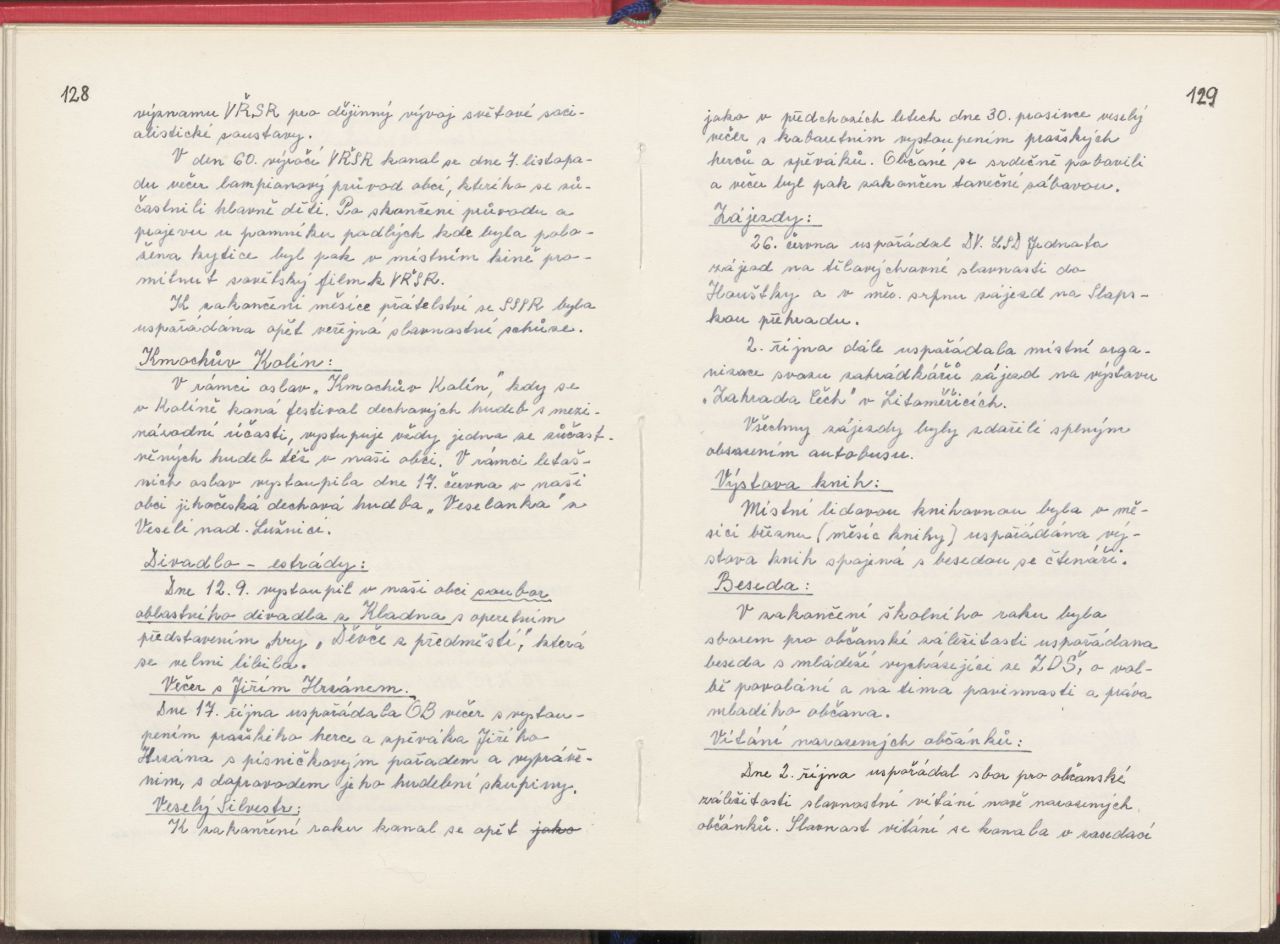 128
významu VŘSR pro dějinný vývoj světové soci-
alistické soustavy.
V den 60. výročí VŘSR konal se dne 7. listopa-
du večer lampionový průvod obcí, kterého se zú-
častnili hlavně děti. Po skončení průvodu a
projevu u pomníku padlých kde byla polo-
žena kytice byl pak v místním kině pro-
mítnut sovětský film k VŘSR.
K zakončení měsíce přátelství se SSSR byla
uspořádána opět veřejná slavnostní schůze.
Kmochův Kolín:
V rámci oslav „Kmochův Kolín", kdy se
v Kolíně koná festival dechových hudeb s mezi-
národní účastí, vystupuje vždy jedna ze zúčast-
něných hudeb též v naší obci. V rámci letoš-
ních oslav vystoupila dne 17. června v naší
obci jihočeská dechová hudba „Veselanka" z
Veselí nad. Lužnicí.
Divadlo - estrády:
Dne 12. 9. vystoupil v naší obci soubor
oblastního divadla z Kladna s operetním
představením „hry „Děvče z předměstí", která
se velmi líbila.
Večer s Jiřím Hrzánem.
Dne 17. října uspořádala OB večer s vystou-
pením pražského herce a zpěváka Jiřího
Hrzána s písničkovým pořadem a vyprávě-
ním, s doprovodem jeho hudební skupiny.
Veselý Silvestr:
K zakončení roku konal se opět jako
129
jako v předchozích letech dne 30. prosince veselý
večer s kabaretním vystoupením pražských
herců a zpěváků. Občané se srdečně pobavili
a večer byl pak zakončen taneční zábavou.
Zájezdy:
26. června uspořádal DV. LSD Jednota
zájezd na tělovýchovné slavnosti do
Houštky a v měs. srpnu zájezd na Slaps-
kou přehradu.
2. října dále uspořádala místní orga-
nizace svazu zahrádkářů zájezd na výstavu
„Zahrada Čech" v Litoměřicích.
Všechny zájezdy byly zdařilé s plným
obsazením autobusu.
Výstava knih:
Místní lidovou knihovnou byla v mě-
síci březnu (měsíc knihy) uspořádána vý-
stava knih spojená s besedou se čtenáři.
Beseda:
V zakončení školního roku byla
sborem pro občanské záležitosti uspořádana
beseda s mládeží vycházející ze ZDŠ, o vol-
bě povolání a na téma povinnosti a práva
mladého občana.
Vítání narozených občánků:
Dne 2. října uspořádal sbor pro občanské
záležitosti slavnostní vítání nově narozených
občánků. Slavnost vítání se konala v zasedací